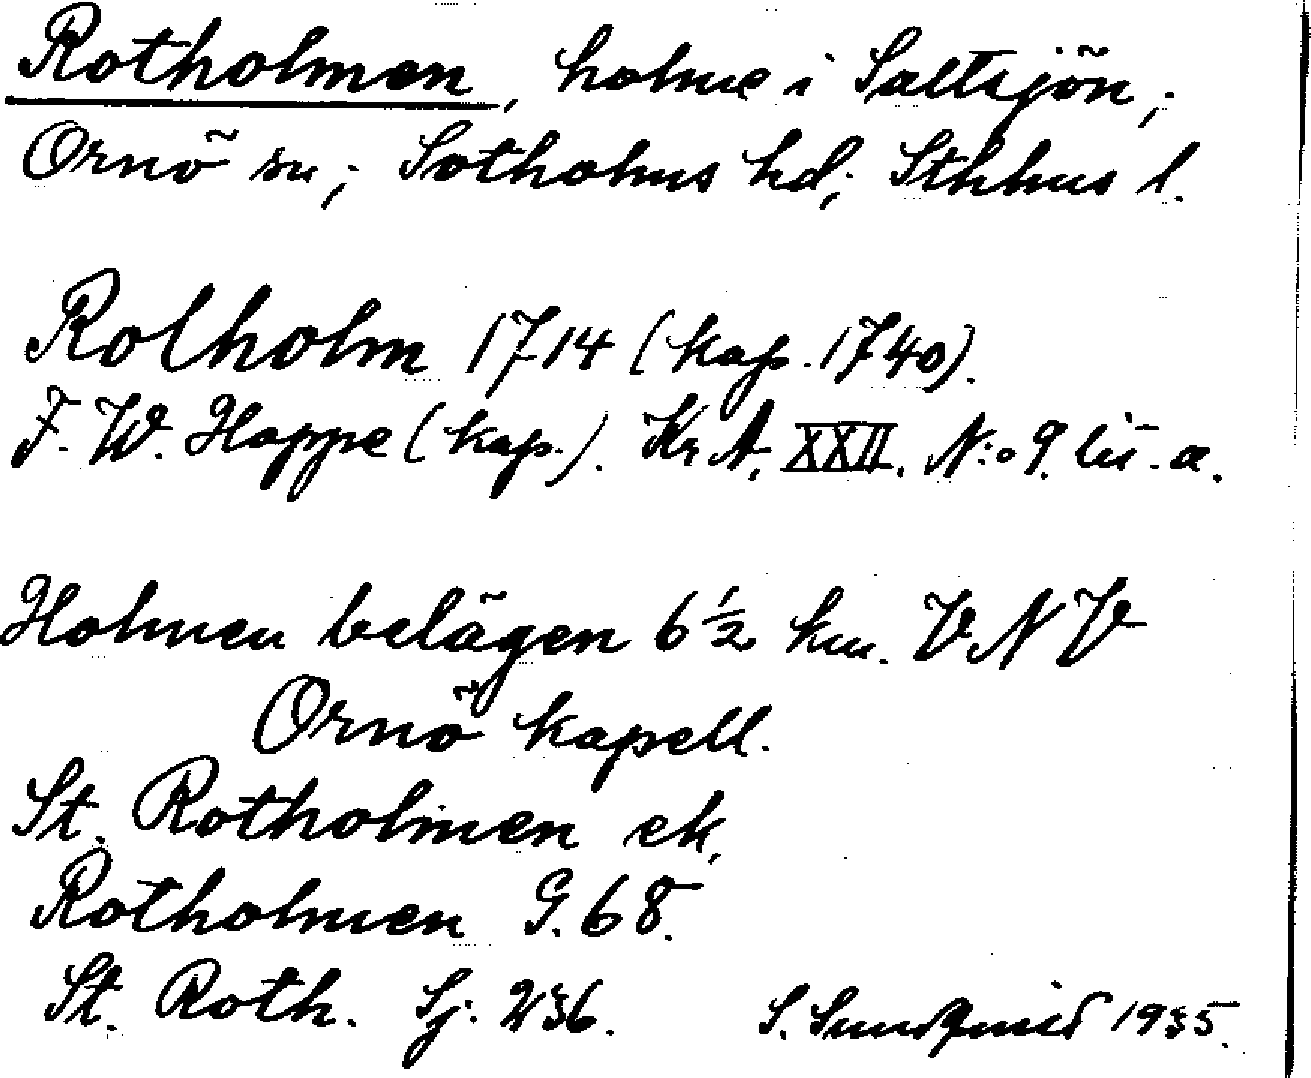 Rotholmen, holme i Saltsjön,
Ornö sn; Sotholms hd; Sthlms l.
Rotholm 1714 (kop. 1740).
F. W. Hoppe (kop.). Kr A. XXII. N:o 9. litt. a.
Holmen belägen 6 1/2 km. VNV
Ornö kapell.
St. Rotholmen ek.
Rotholmen G. 68.
St. Roth. Sj. 236. S. Sundquist 1935.